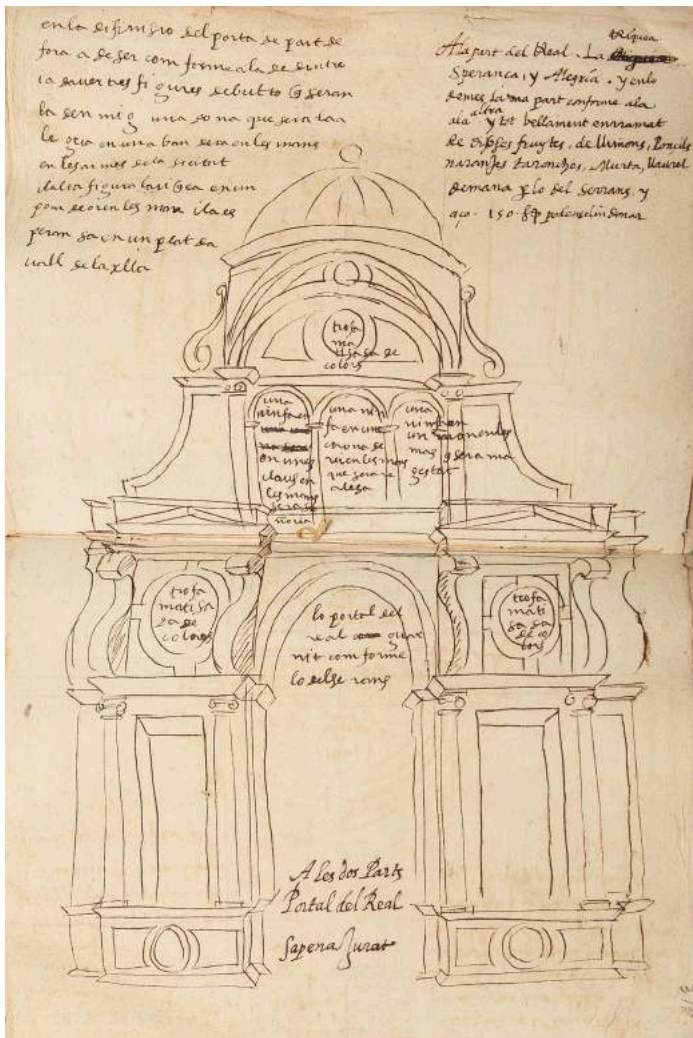 en la difinisio del porta de part de
fora a deser com forme a la de dintre
ia dauer tres figures de butto q seran
la den mig una dona que sera la a
le gria en una bandera en les mans
en les armes de la siutat
ila altra figura
pom de or en les mans ila es
peransa en un plat da
vall de la ella
A la part del Real. La
Sperança, y Alegria. y en lo
demes la ma part conforme a la
altra
y tot bellament enrramat
de diuerses fruytes, de llimons, Poncils
naranjes taronches, Murta, llaurel
demana p lo del serrans. y
aço. 150. poden selin donar
trofa
ma
tisada de
colors
una
ninfa en
en unes
claus en
les mans
una nin
fa en una
corona de
rei en les mans
que sera re
alesa
una
ninfa en
un mon en les
mans q sera ma
gestat
trofa
matisa
da de
colors
lo portal del
real guar
nit comforme
lo dels serrans
trofa
mati
sada
de co
lors
A les dos Parts
Portal del Real
Sapena Jurat